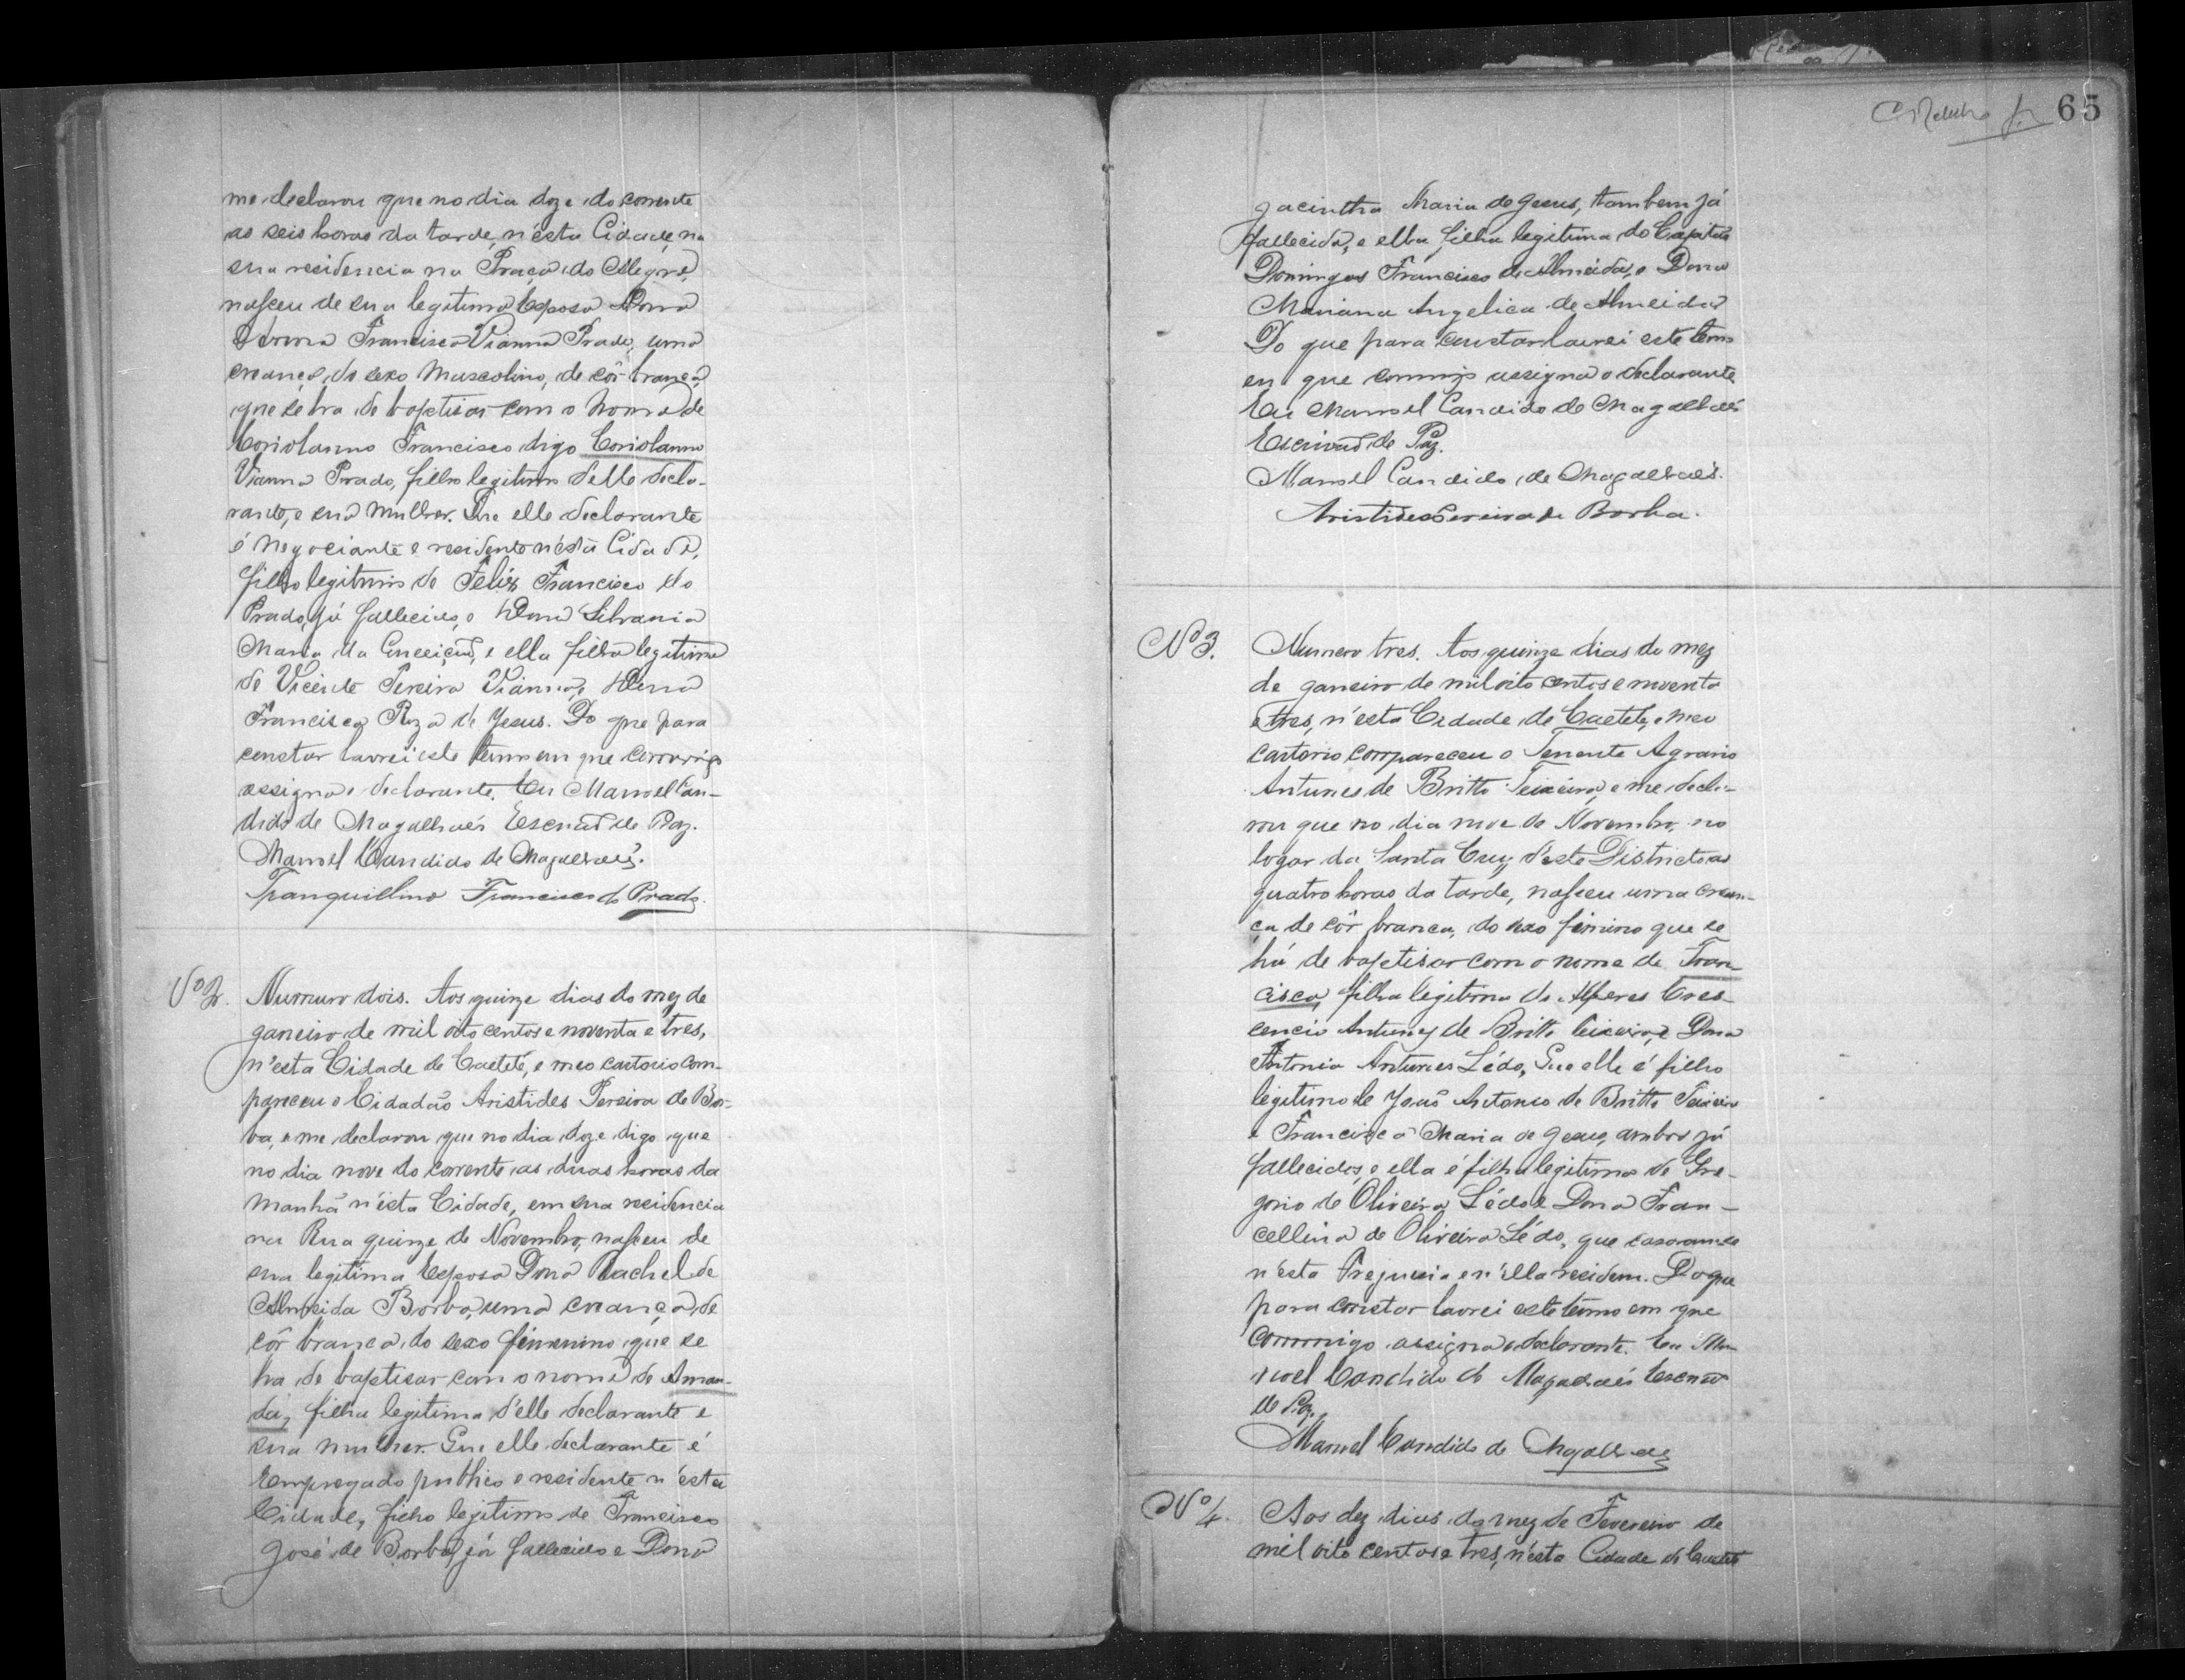 me declarou que no dia doze do corrente
as seis horas da tarde, n'esta Cidade, na
sua residencia na Praça do Alegre,
nasceu de sua legitima Esposa Dona
Francisca Vianna Prado, uma
creança do sexo Masculino, de côr branca,
que se ha de baptisar com o nome de
Coriolanno Francisco digo Coriolanno
Vianna Prado, filho legitimo delle decla-
rante, e sua Mulher. Que elle declarante
é Negociante e residente n'esta Cidade,
filho legitimo de Felix Francisco do
Prado, já fallecido, e Dona Silvania
Maria da Conceiçaõ, e ella filha legitima
de Vicente Pereira Vianna, e Dona
Francisca Roza de Jesus. Do que para
constar lavrei este termo em que commigo
assigna o declarante. Eu Manoel Can-
dido de Magalhaẽs Escrivaõ de Paz.
Manoel Candido de Magalhaẽs.
Tranquillino Francisco do Prado.
Nº 2. Numero dois. Aos quinze dias do mez de
Janeiro de mil oito centos e noventa e tres,
n'esta Cidade de Caeteté, e meo cartorio com-
pareceu o Cidadaõ Aristides Pereira de Bor-
ba, e me declarou que no dia doze digo que
no dia nove do corrente as duas horas da
manhã n'esta Cidade, em sua residencia
na Rua quinze de Novembro, nasceu de
sua legitima Esposa Dona Rachel de
Almeida Borba, uma creança, de
côr branca, do sexo femenino que se
ha de baptisar com o nome de Aman-
da, filha legitima d'elle declarante e
sua mulher. Que elle declarante é
Empregado publico e residente n'esta
Cidade, filho legitimo de Francisco
José de Borba, já fallecido e Dona
65
Jacintha Maria de Jesus, tambem já
fallecida, e ella filha legitima do Capitaõ
Domingos Francisco de Almeida, e Dona
Mariana Angelica de Almeida
Do que para constar lavrei este termo
em que commigo assigna o declarante
Eu Manoel Candido de Magalhaẽs
Escrivaõ de Paz.
Manoel Candido de Magalhaẽs.
Aristides Pereira de Borba.
Nº 3. Numero tres. Aos quinze dias do mez
de Janeiro de mil oito centos e noventa
e tres, n'esta Cidade de Caeteté, e meo
cartorio compareceu o Tenente Agrario
Antunes de Britto Teixeira, e me decla-
rou que no dia nove de Novembro, no
logar da Santa Cruz d'este Districto as
quatro horas da tarde, nasceu uma crean-
ça de côr branca, do sexo feminino que se
há de baptisar com o nome de Fran-
cisca, filha legitima do Alferes Cres-
cencio Antunes de Britto Teixeira, e Dona
Antonia Antunes Lédo, Que elle é filho
legitimo de Joaõ Antonio de Britto Teixeira
e Francisca Maria de Jesus, ambos já
fallecidos, e ella é filha legitima de Gre-
gorio de Oliveira Lédo e Dona Fran-
cellina de Oliveira Lédo, que casaram-se
n'esta Freguesia e n'ella residem. Do que
para constar lavrei este termo em que
commigo assigna o declarante. Eu Ma-
noel Candido de Magalhaẽs Escrivaõ
de Paz.
Manoel Candido de Magalhaẽs
Nº 4. Aos dez dias do mez de Fevereiro de
mil oito centos e tres, n'esta Cidade de Caeteté